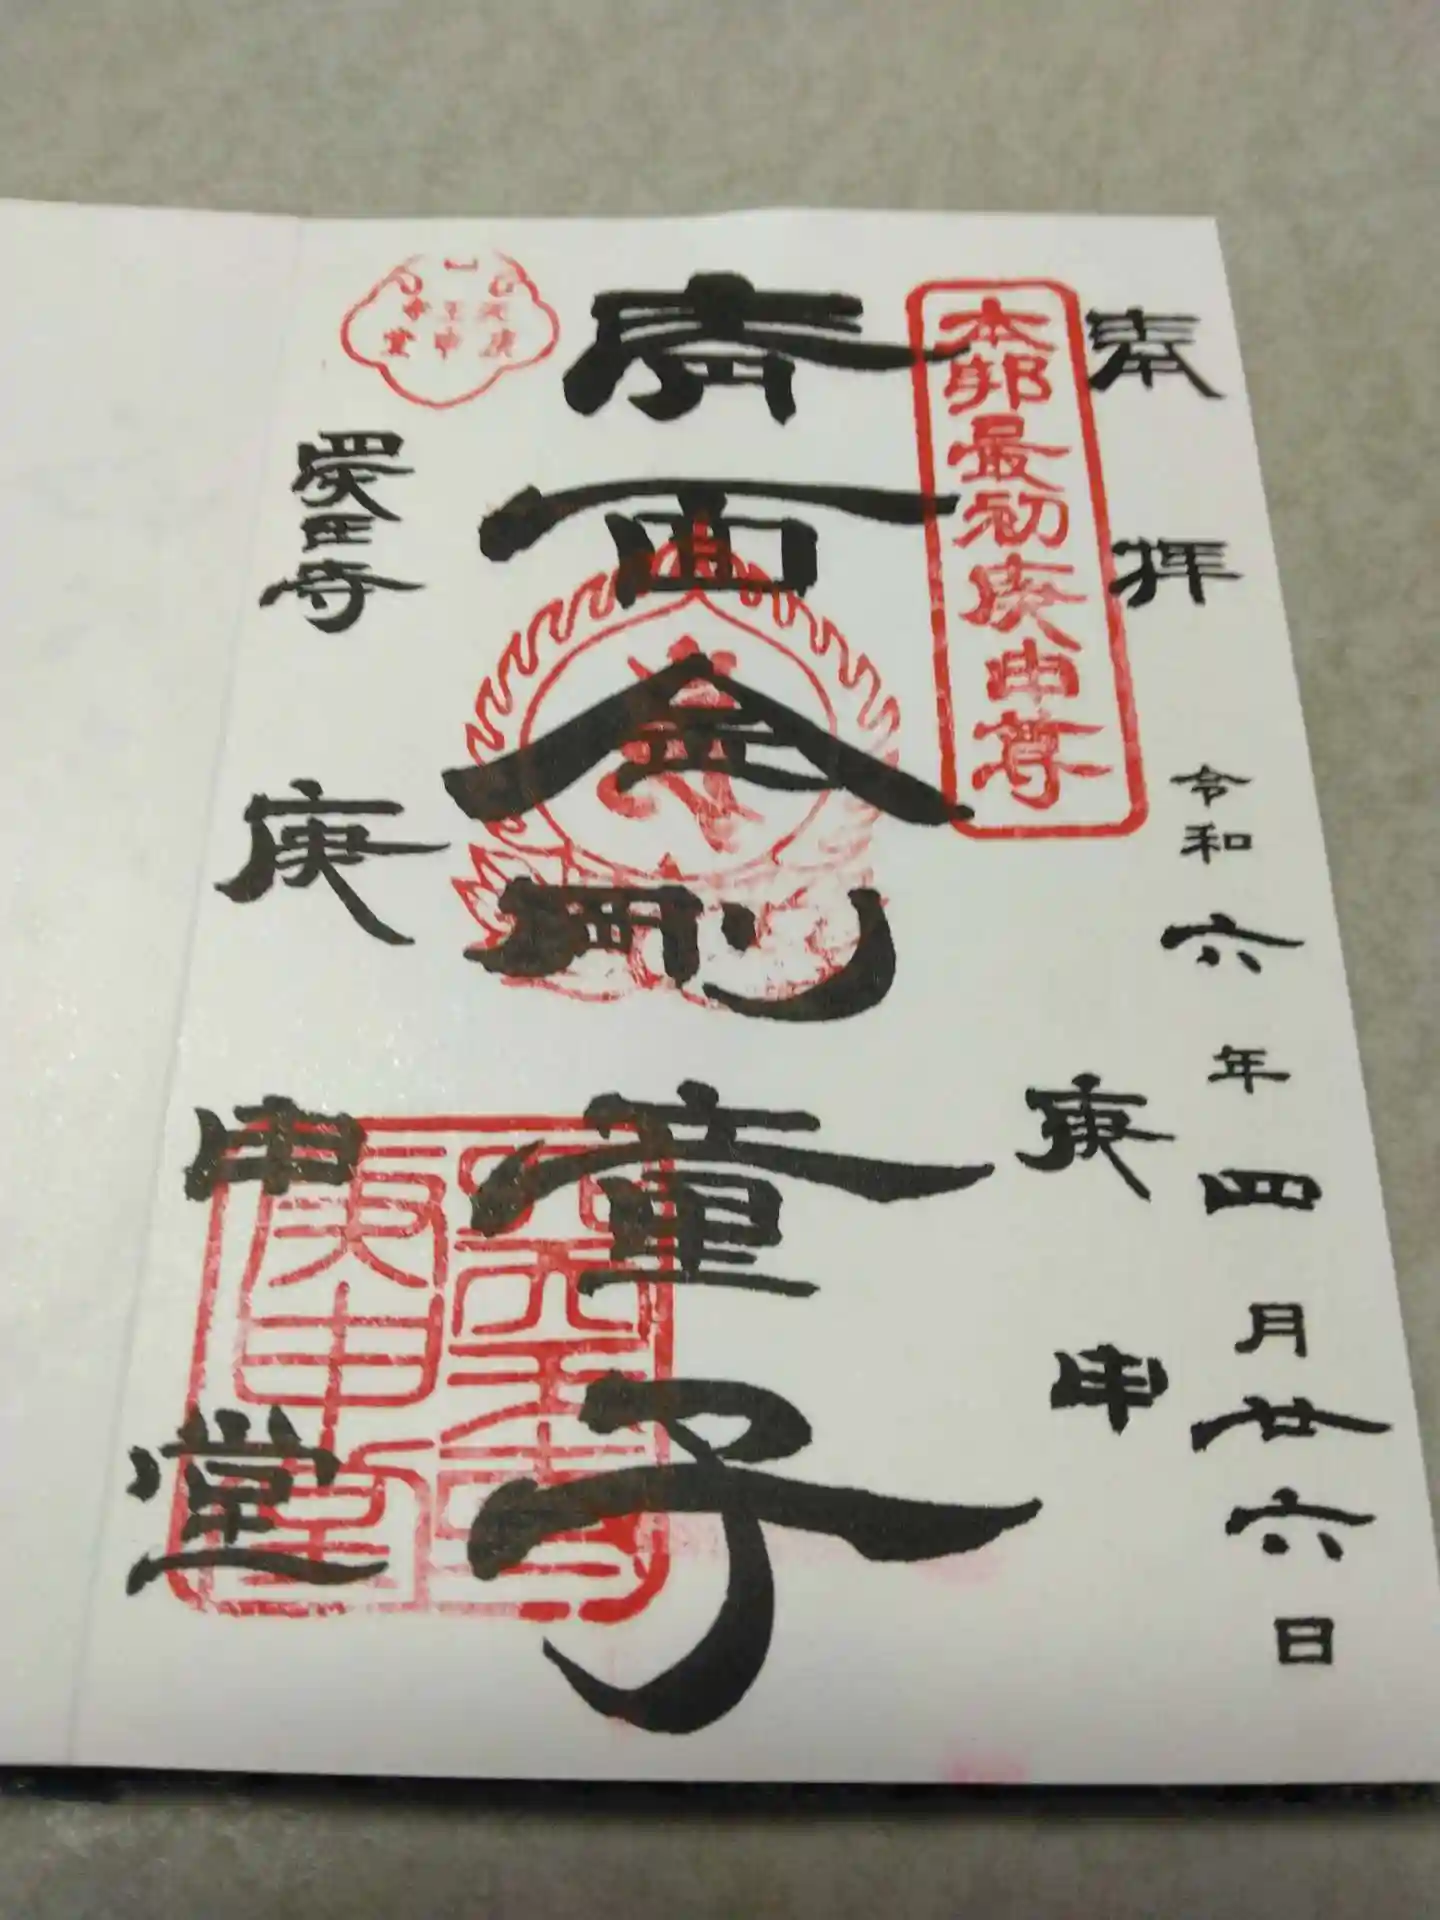 奉拝
令和六年四月廿六日
庚申
本邦最初庚申尊
青面金剛童子
四天王寺
庚申堂
庚申堂